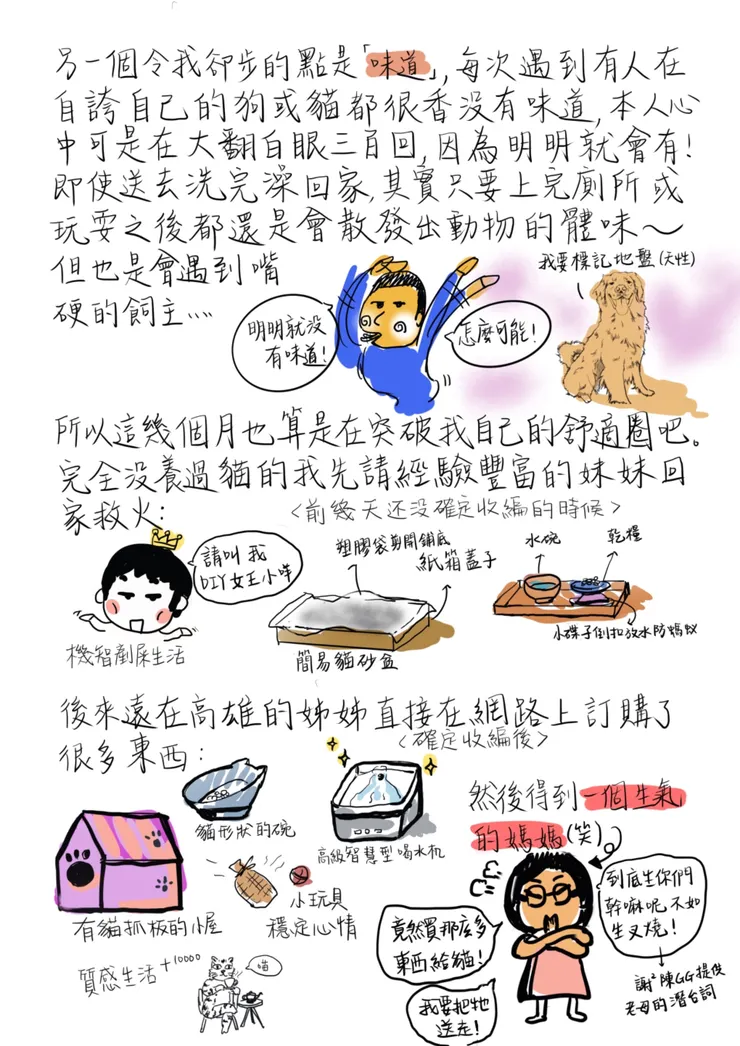 另一個令我卻步的點是「味道」,每次遇到有人在
自誇自己的狗或貓都很香沒有味道,本人心
中可是在大翻白眼三百回,因為明明就會有!
即使送去洗完澡回家,其實只要上完廁所或
玩耍之後都還是會散發出動物的體味~
但也是會遇到嘴
硬的飼主....
我要標記地盤(天性)
明明就沒
有味道!
怎麼可能!
所以這幾個月也算是在突破我自己的舒適圈吧。
完全沒養過貓的我先請經驗豐富的妹妹回
家救火:
<前幾天还沒確定收編的時候>
請叫我
DIY女王小咩
機智剷屎生活
塑膠袋剪開鋪底
紙箱蓋子
簡易貓砂盆
水碗
乾糧
小碟子倒扣放水防螞蟻
後來遠在高雄的姊姊直接在網路上訂購了
很多東西:
<確定收編後>
貓形狀的碗
高級智慧型喝水机
有貓抓板的小屋
小玩具
穩定心情
質感生活+10000
喵
然後得到一個生氣
的媽媽(笑)
到底生你們
幹嘛呢不如
生叉燒!
竟然買那麼多
東西給貓!
我要把牠
送走!
謝²陳GG提供
老母的潛台詞